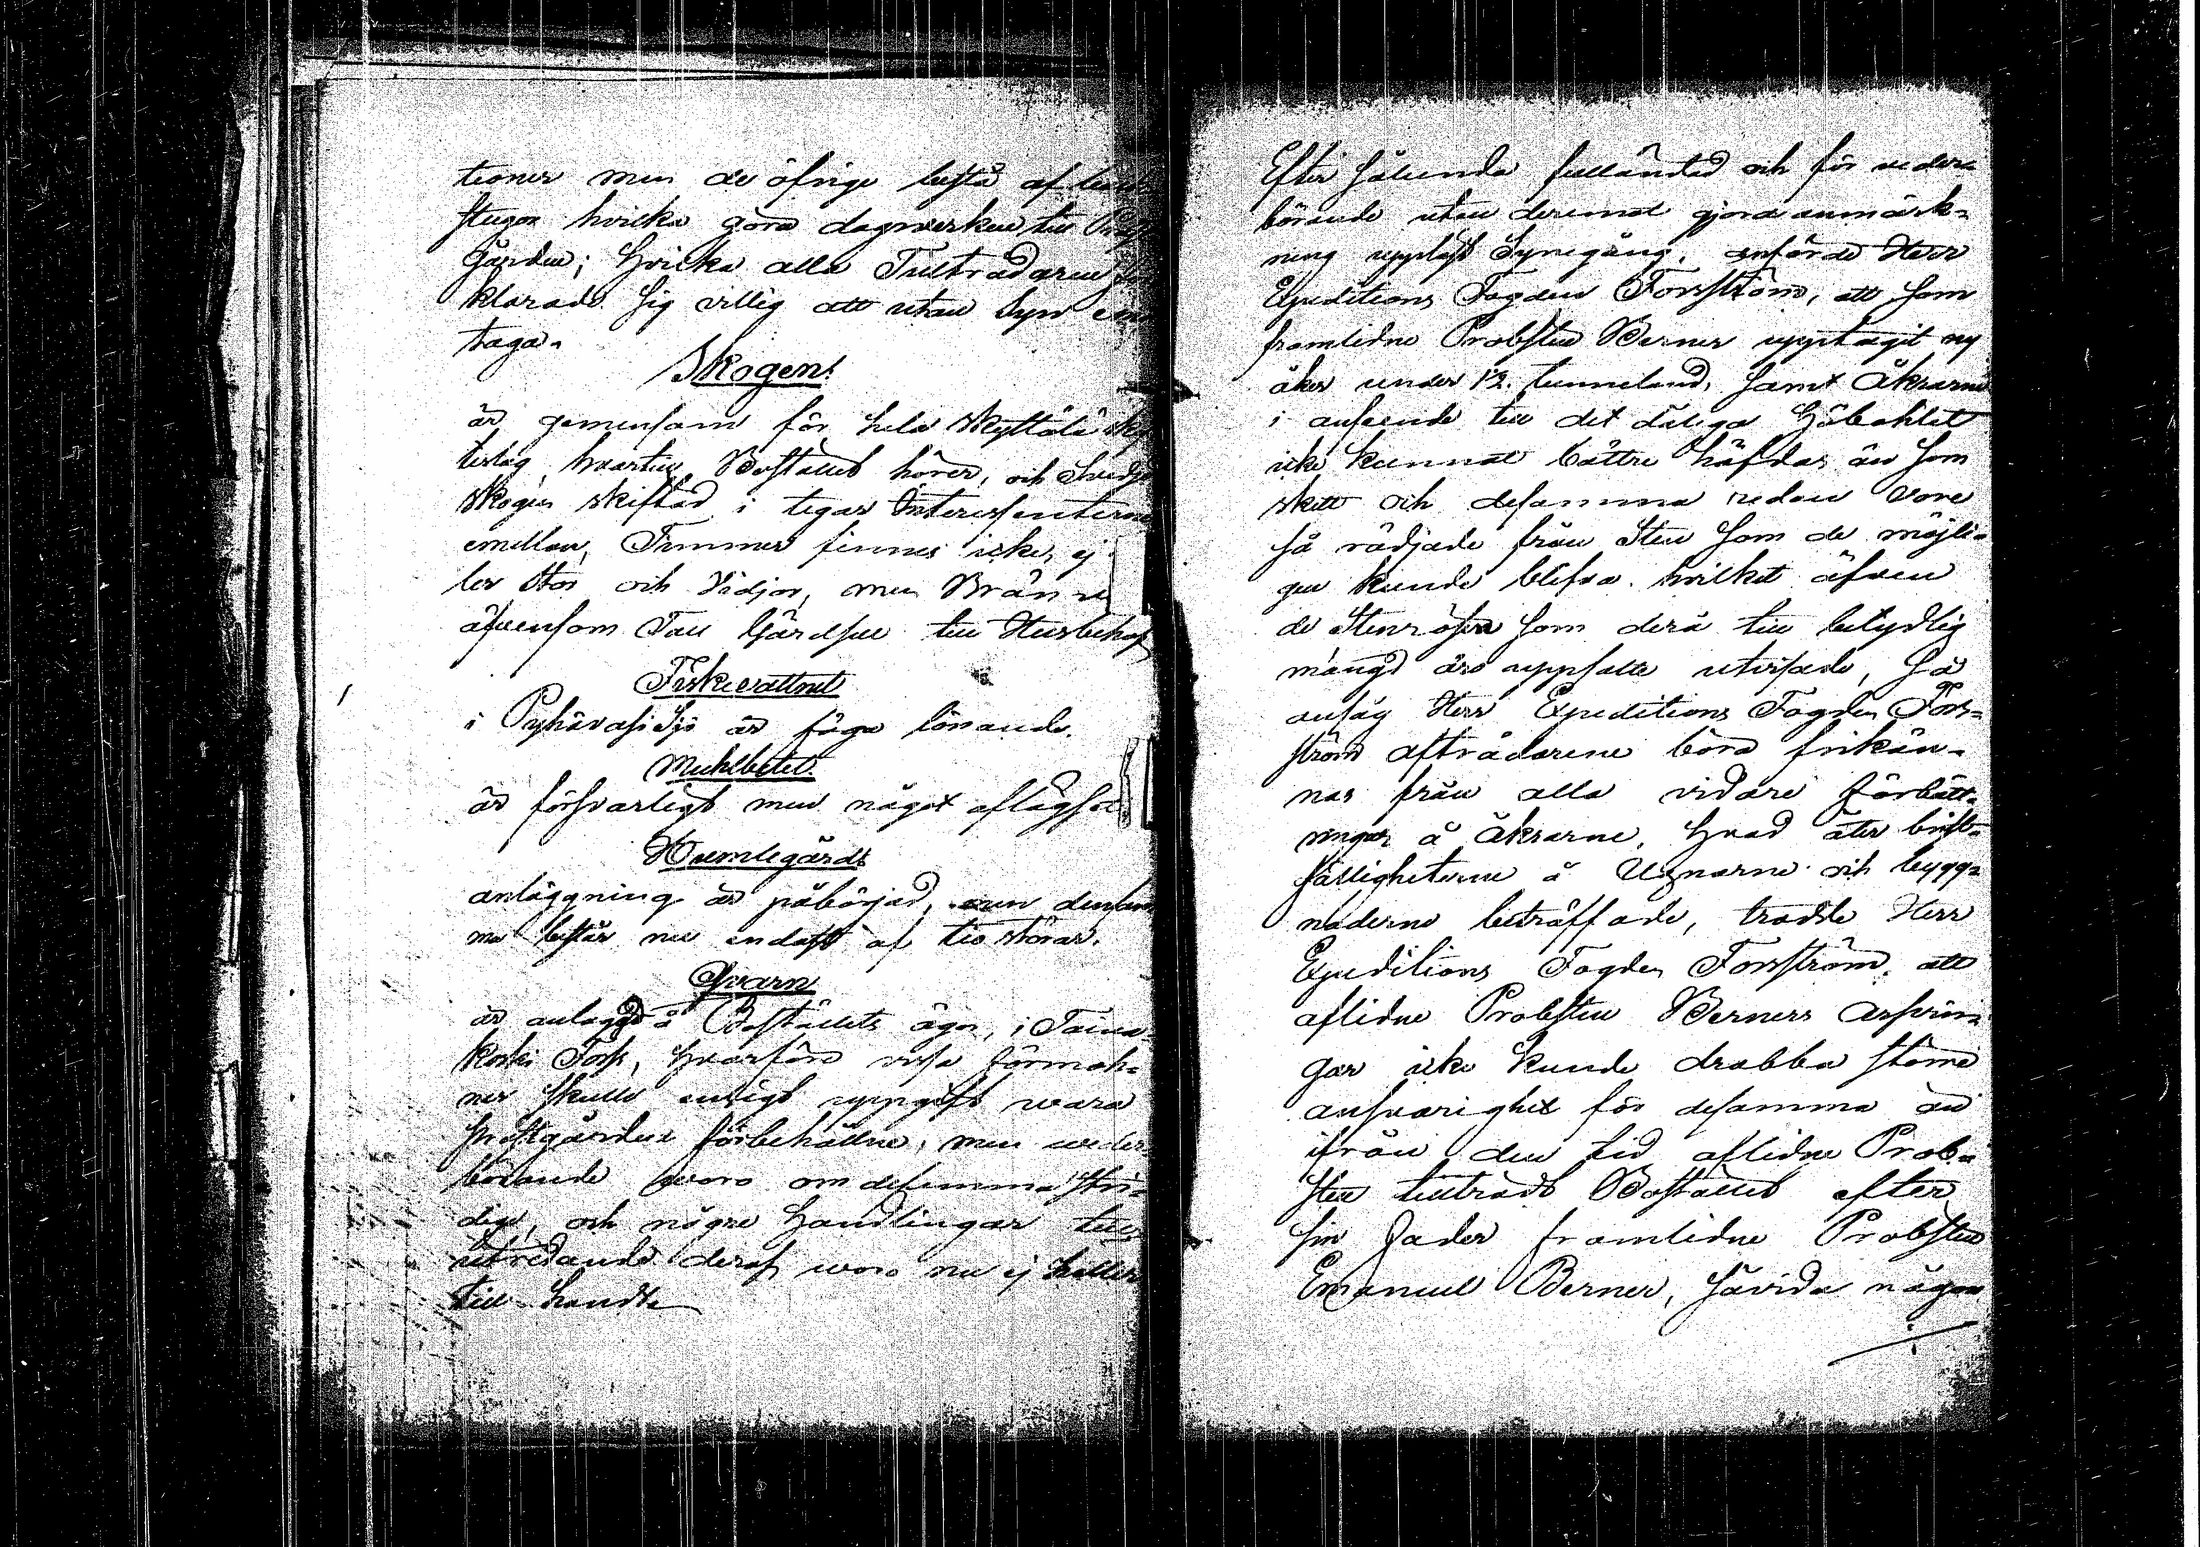 tioner men de öfrige bestå af
stugor hvilka göra dagsverken till
Gården; Hvilka alla Tillträdaren
klarade sig villig att utan Syn
taga.
Skogen
är gemensam för hela Skyttälä
teslag hvartill Bostället hörer, och
Skogen skiftad i tegar Interessenterne
emellan, Timmer finnes icke, ej
ler Stör och Vidjor, men Bränn
äfvensom Tall Gärdsel till Husbehof
Fiskevattnet
i Pyhäräfsi Sjö är föga lönande.
Muhlbetet
är försvarligt men något aflägs
Humlegårds
anläggning är påbörjad, men densam
ma består nu endast af tio störar.
Qvarn
är anlaggd å Boställets ägor, i Taina
koski Fors, hvarföre vissa förmåh-
ner skulle enligt uppgift wara
prestgården förbehållne, men weder
börande woro om desamma stri-
dige, och någre Handlingar till
utredande deraf woro nu ej heller
till hands
Efter sålunda fulländad och för veder-
börande utan deremot gjord anmärk-
ning uppläst Synegång, anförde Herr
Expeditions Fogden Forsström, att som
framlidne Probsten Berner upptagit ny
åker under 12. tunneland, samt Åkrarne
i anseende till det dåliga Höbohlet
icke kunnat bättre häfdas än som
skett och desamma redan vore
så rödjade från Sten som de möjli-
gen kunde blifva. hvilket äfven
de Stenrösen som derå till betydlig
mängd äro uppsatte utvisade, så
ansåg Herr Expeditions Fogden Fors-
ström afträdarene böra frikän-
nas från alla vidare förbätt-
ringar å åkrarne, Hvad åter brist-
fälligheterne å Ugnarne och bygg-
naderne beträffade, trodde Herr
Expeditions Fogden Forsström, att
aflidne Probsten Berners Arfvin-
gar icke kunde drabba större
ansvarighet för desamma än
ifrån den tid aflidne Prob-
sten tillträdt Bostället efter
sin Fader framlidne Probsten
Emanuel Berner, såvida någon